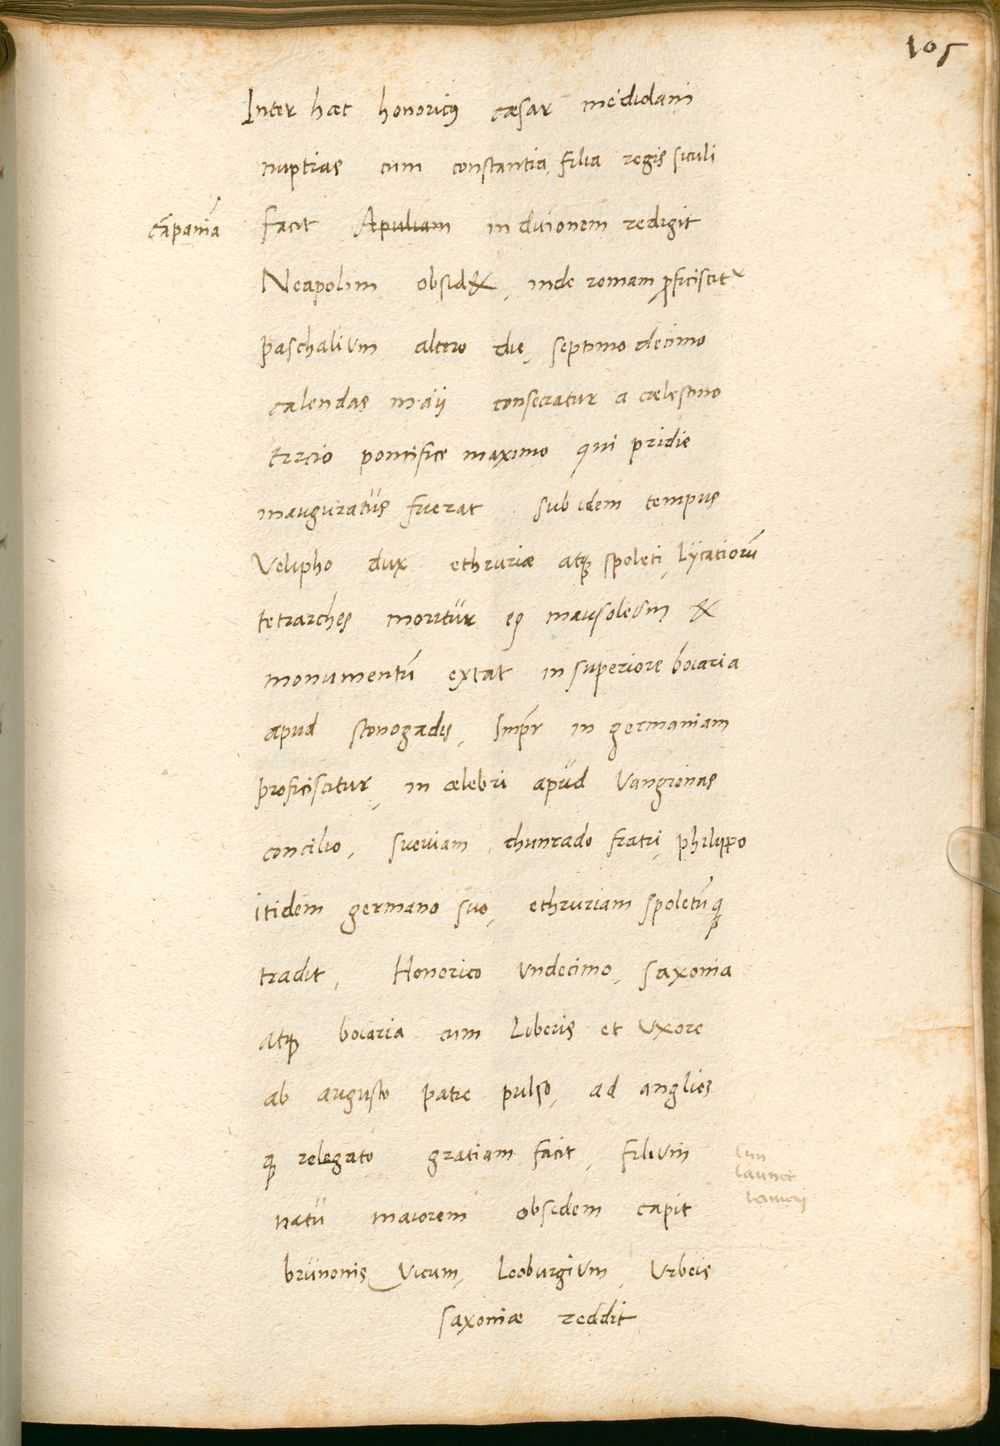 105
Inter haec honoricus caesar mediolani
nuptias cum constantia, filia regis siculi
campaniā
facit Apuliam in dicionem redigit
Neapolim obsid&, inde romam proficiscitr
paschalium altero die, septimo decimo
calendas maij consecratur a coelestino
tercio pontifice maximo qui pridie
inauguratus fuerat sub idem tempus
Velipho dux ethruriae atq; spoleti, lycatiorū
tetrarches moritur eq mausoleum &
monumentū extat in superiore boiaria
apud stonogadis, Impr in germaniam
proficiscitur, in celebri apud Vangionas
concilio, sueviam, chunrado fratri, philippo
itidem germano suo, ethruriam spoletūq;
tradit, Honorico undecimo, saxonia
atq; boiaria cum Liberis et uxore
ab augusto patre pulso, ad anglios
q; relegato gratiam facit, filium
natu maiorem obsidem capit
brunonis Vicum, Leoburgium, Urbeis
saxoniae reddit